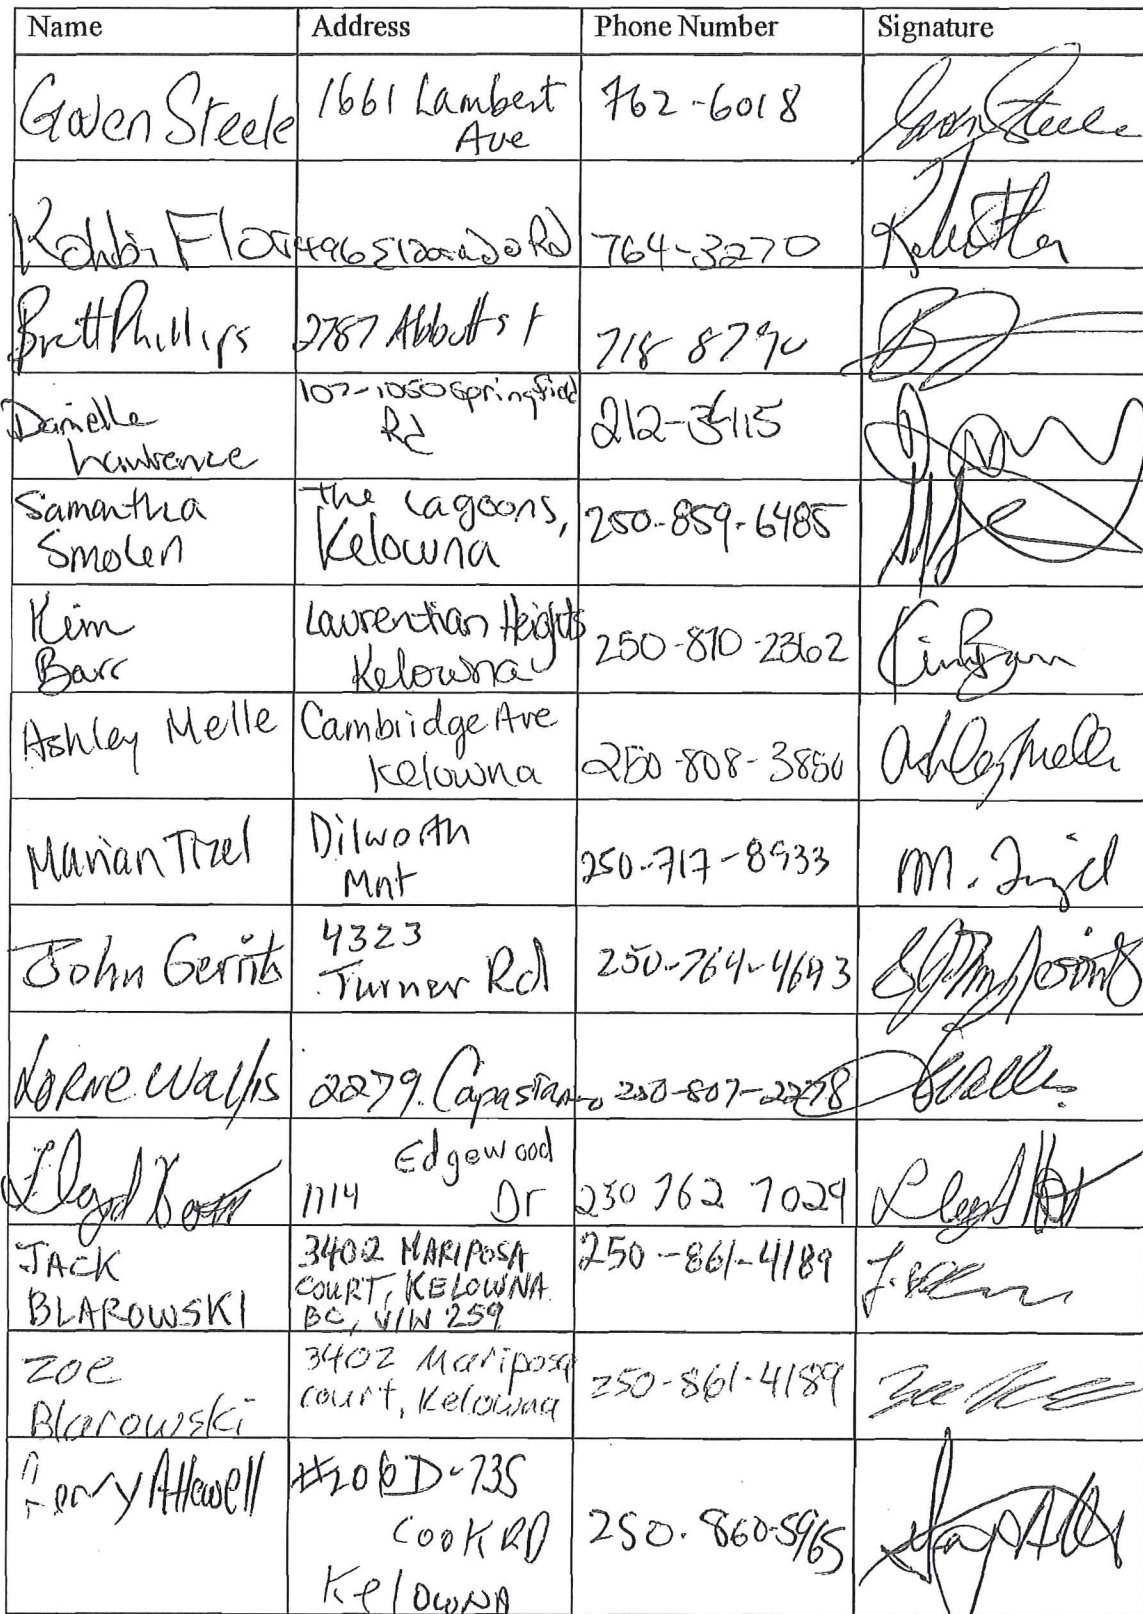 Name Address Phone Number Signature
Gwen Steele 1661 Lambert Ave 762-6018 Gwen Steele
496 Eldorado Rd 764-3270
Brett Phillips 2787 Abbott st 718 8790
Danielle Lawrence 107-1050 Springfield Rd 212-3415
Samantha Smolen The Lagoons, Kelowna 250-859-6485
Kim Barr Laurentian Heights Kelowna 250-870-2362 Kim Barr
Ashley Melle Cambridge Ave Kelowna 250-808-3850 Ashley Melle
Marian Tizel Dilworth Mnt 250-717-8933 M. Tizel
John Gerrits 4323 Turner Rd 250-764-4693
Lorne Wallis 2279 Capastran 250-807-2278
Lloyd 1114 Edgewood Dr 250 762 7029 Lloyd
JACK BLAROWSKI 3402 MARIPOSA COURT, KELOWNA BC, V1W 2S9 250-861-4189
Zoe Blarowski 3402 Mariposa court, Kelowna 250-861-4189
Attewell #206D-735 COOK RD KELOWNA 250.860-5965